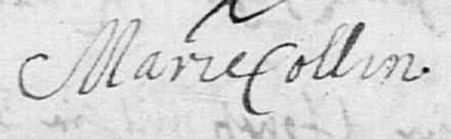 Marie Collin.